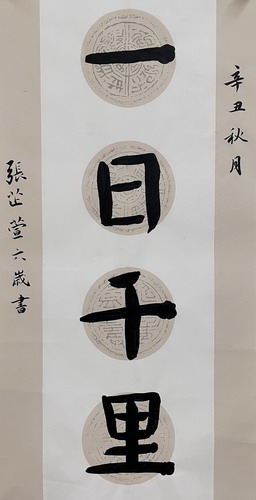 辛丑秋月
一日千里
張芷萱六歲書